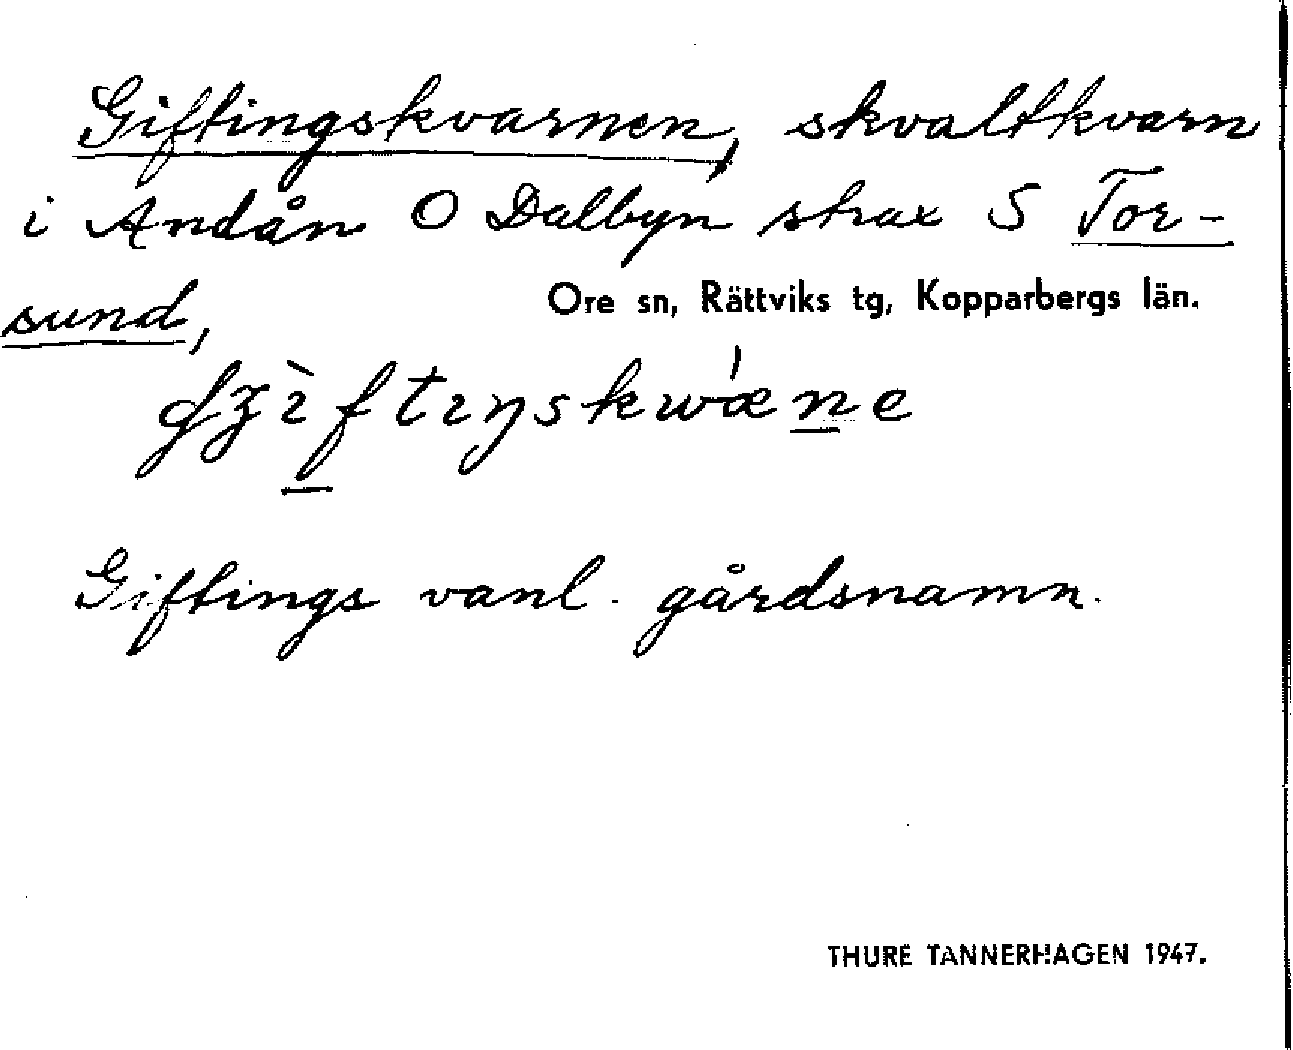 Giftingskvarnen, skvaltkvarn
i Andån O Dalbyn strax S Tor-
sund,
Ore sn, Rättviks tg, Kopparbergs län.
Giftings vanl. gårdsnamn.
THURE TANNERHAGEN 1947.